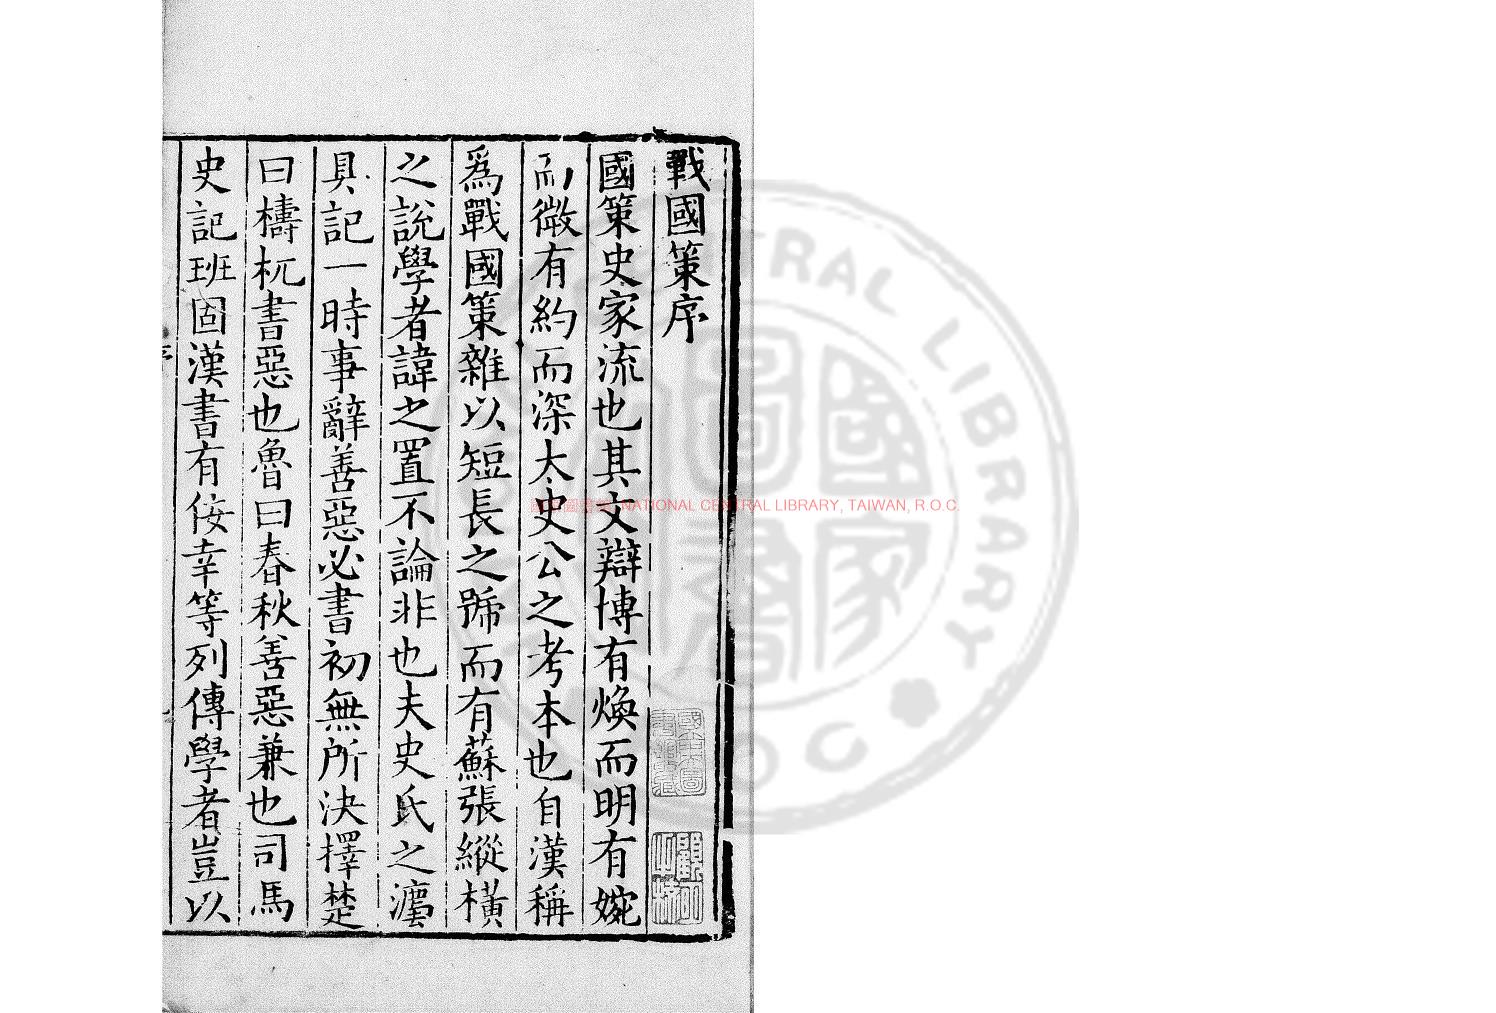 戰國策序
國策史家流也其文辯博有煥而明有婉
而微有約而深太史公之考本也自漢稱
爲戰國策雜以短長之號而有蘇張縱橫
之說學者諱之置不論非也夫史氏之灋
具記一時事辭善惡必書初無所決擇楚
曰檮杌書惡也魯曰春秋善惡兼也司馬
史記班固漢書有佞幸等列傳學者豈以
NATIONAL CENTRAL LIBRARY, TAIWAN, R.O.C.